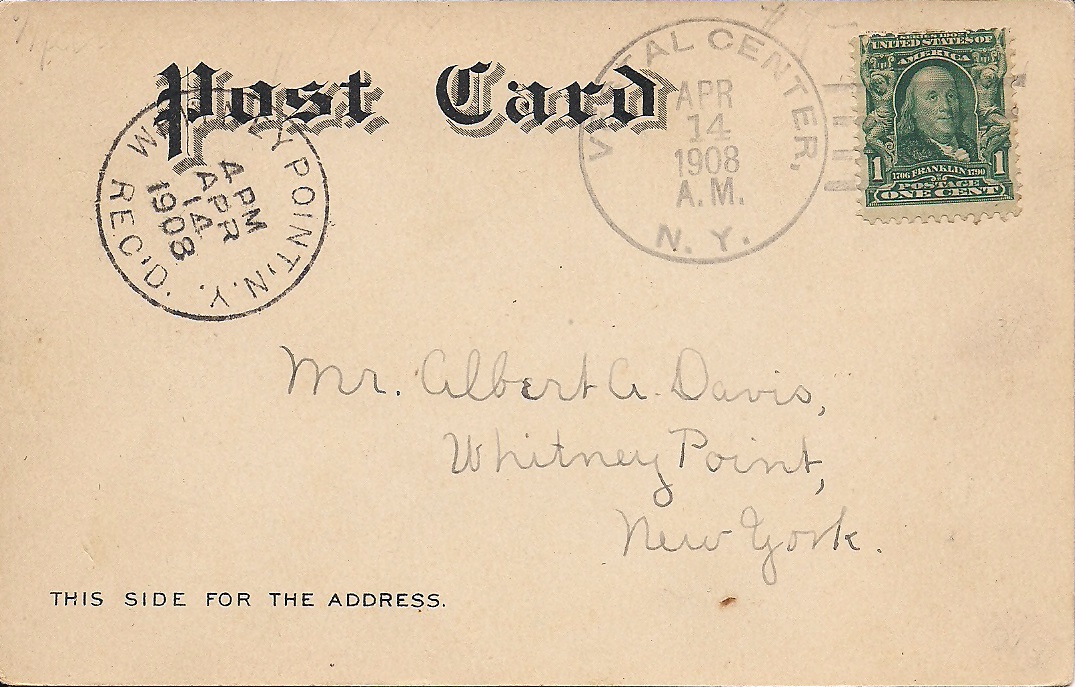 Post Card
VESTAL CENTER,
APR
14
1908
A.M.
N. Y.
UNITED STATES OF
AMERICA
1 1
1706 FRANKLIN 1790
POSTAGE
ONE CENT
WHITNEY POINT, N.Y.
4 PM
APR
14
1908
REC'D.
Mr. Albert A. Davis,
Whitney Point,
New York.
THIS SIDE FOR THE ADDRESS.